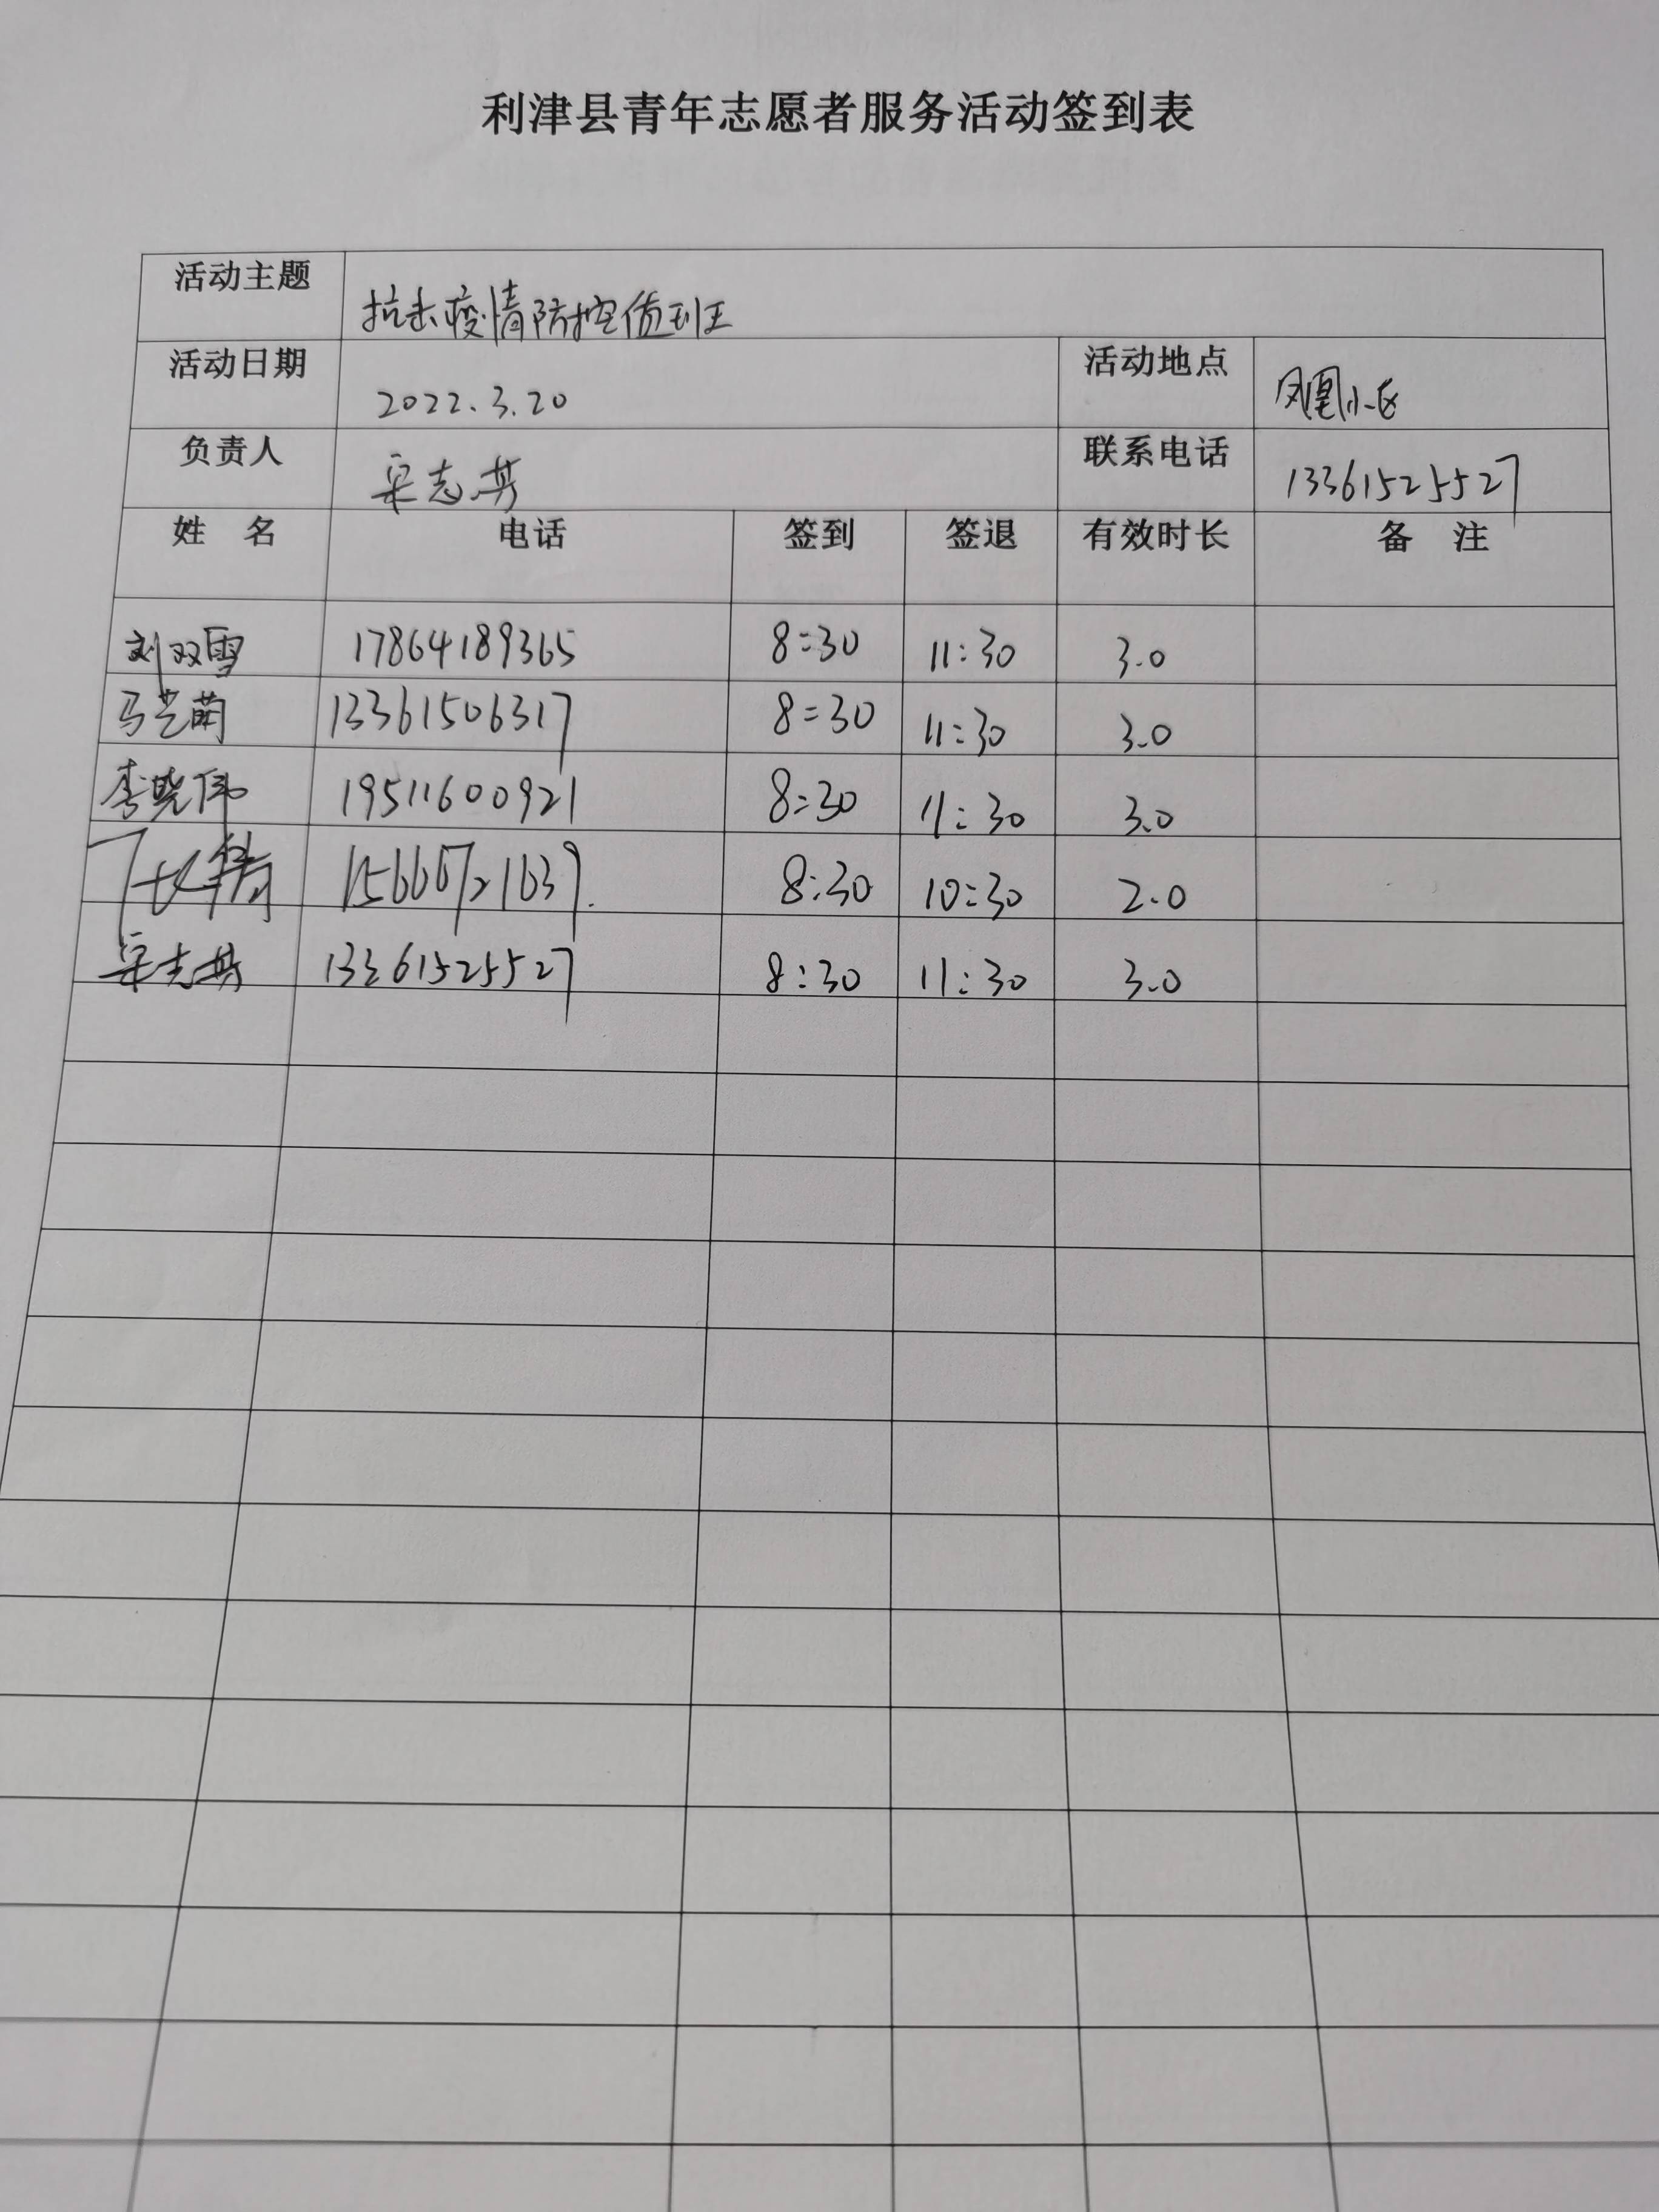 利津县青年志愿者服务活动签到表
活动主题 抗击疫情防控值班
活动日期 2022.3.20 活动地点 凤凰小区
负责人 志 联系电话 13361525527
姓 名 电话 签到 签退 有效时长 备 注
刘双雪 17864189365 8:30 11:30 3.0
马艺菌 13361506317 8:30 11:30 3.0
李晓伟 19511600921 8:30 11:30 3.0
8:30 10:30 2.0
志 13361525527 8:30 11:30 3.0